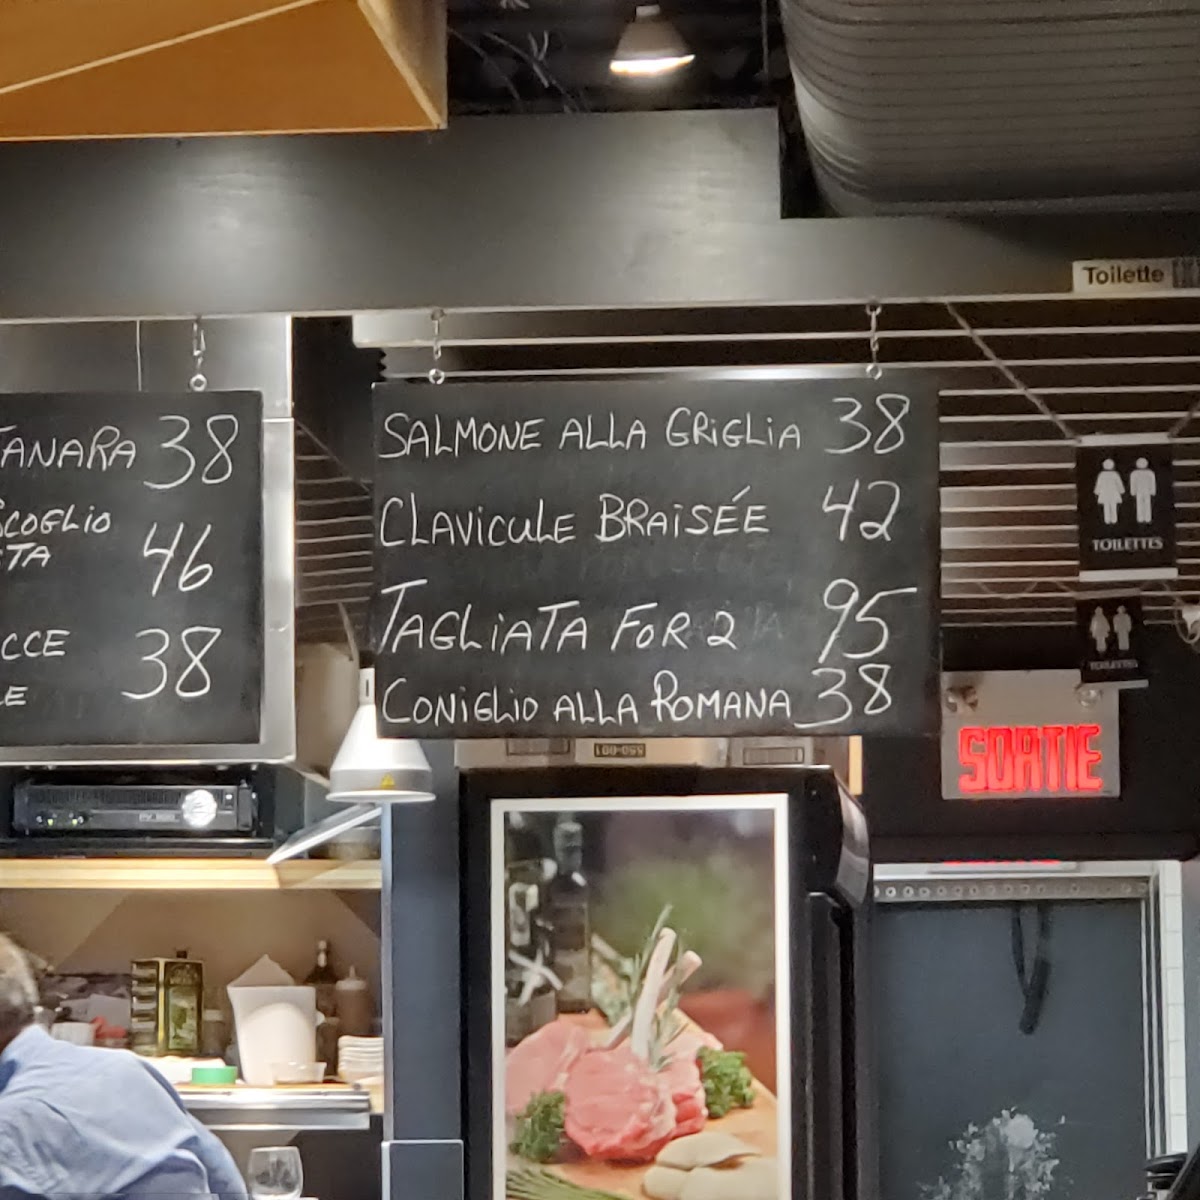 Toilette
TANARA 38
SCOGLIO
STA 46
CCE
LE 38
SALMONE ALLA GRIGLIA 38
CLAVICULE BRAISÉE 42
TAGLIATA FOR 2 95
CONIGLIO ALLA ROMANA 38
TOILETTES
TOILETTES
SORTIE